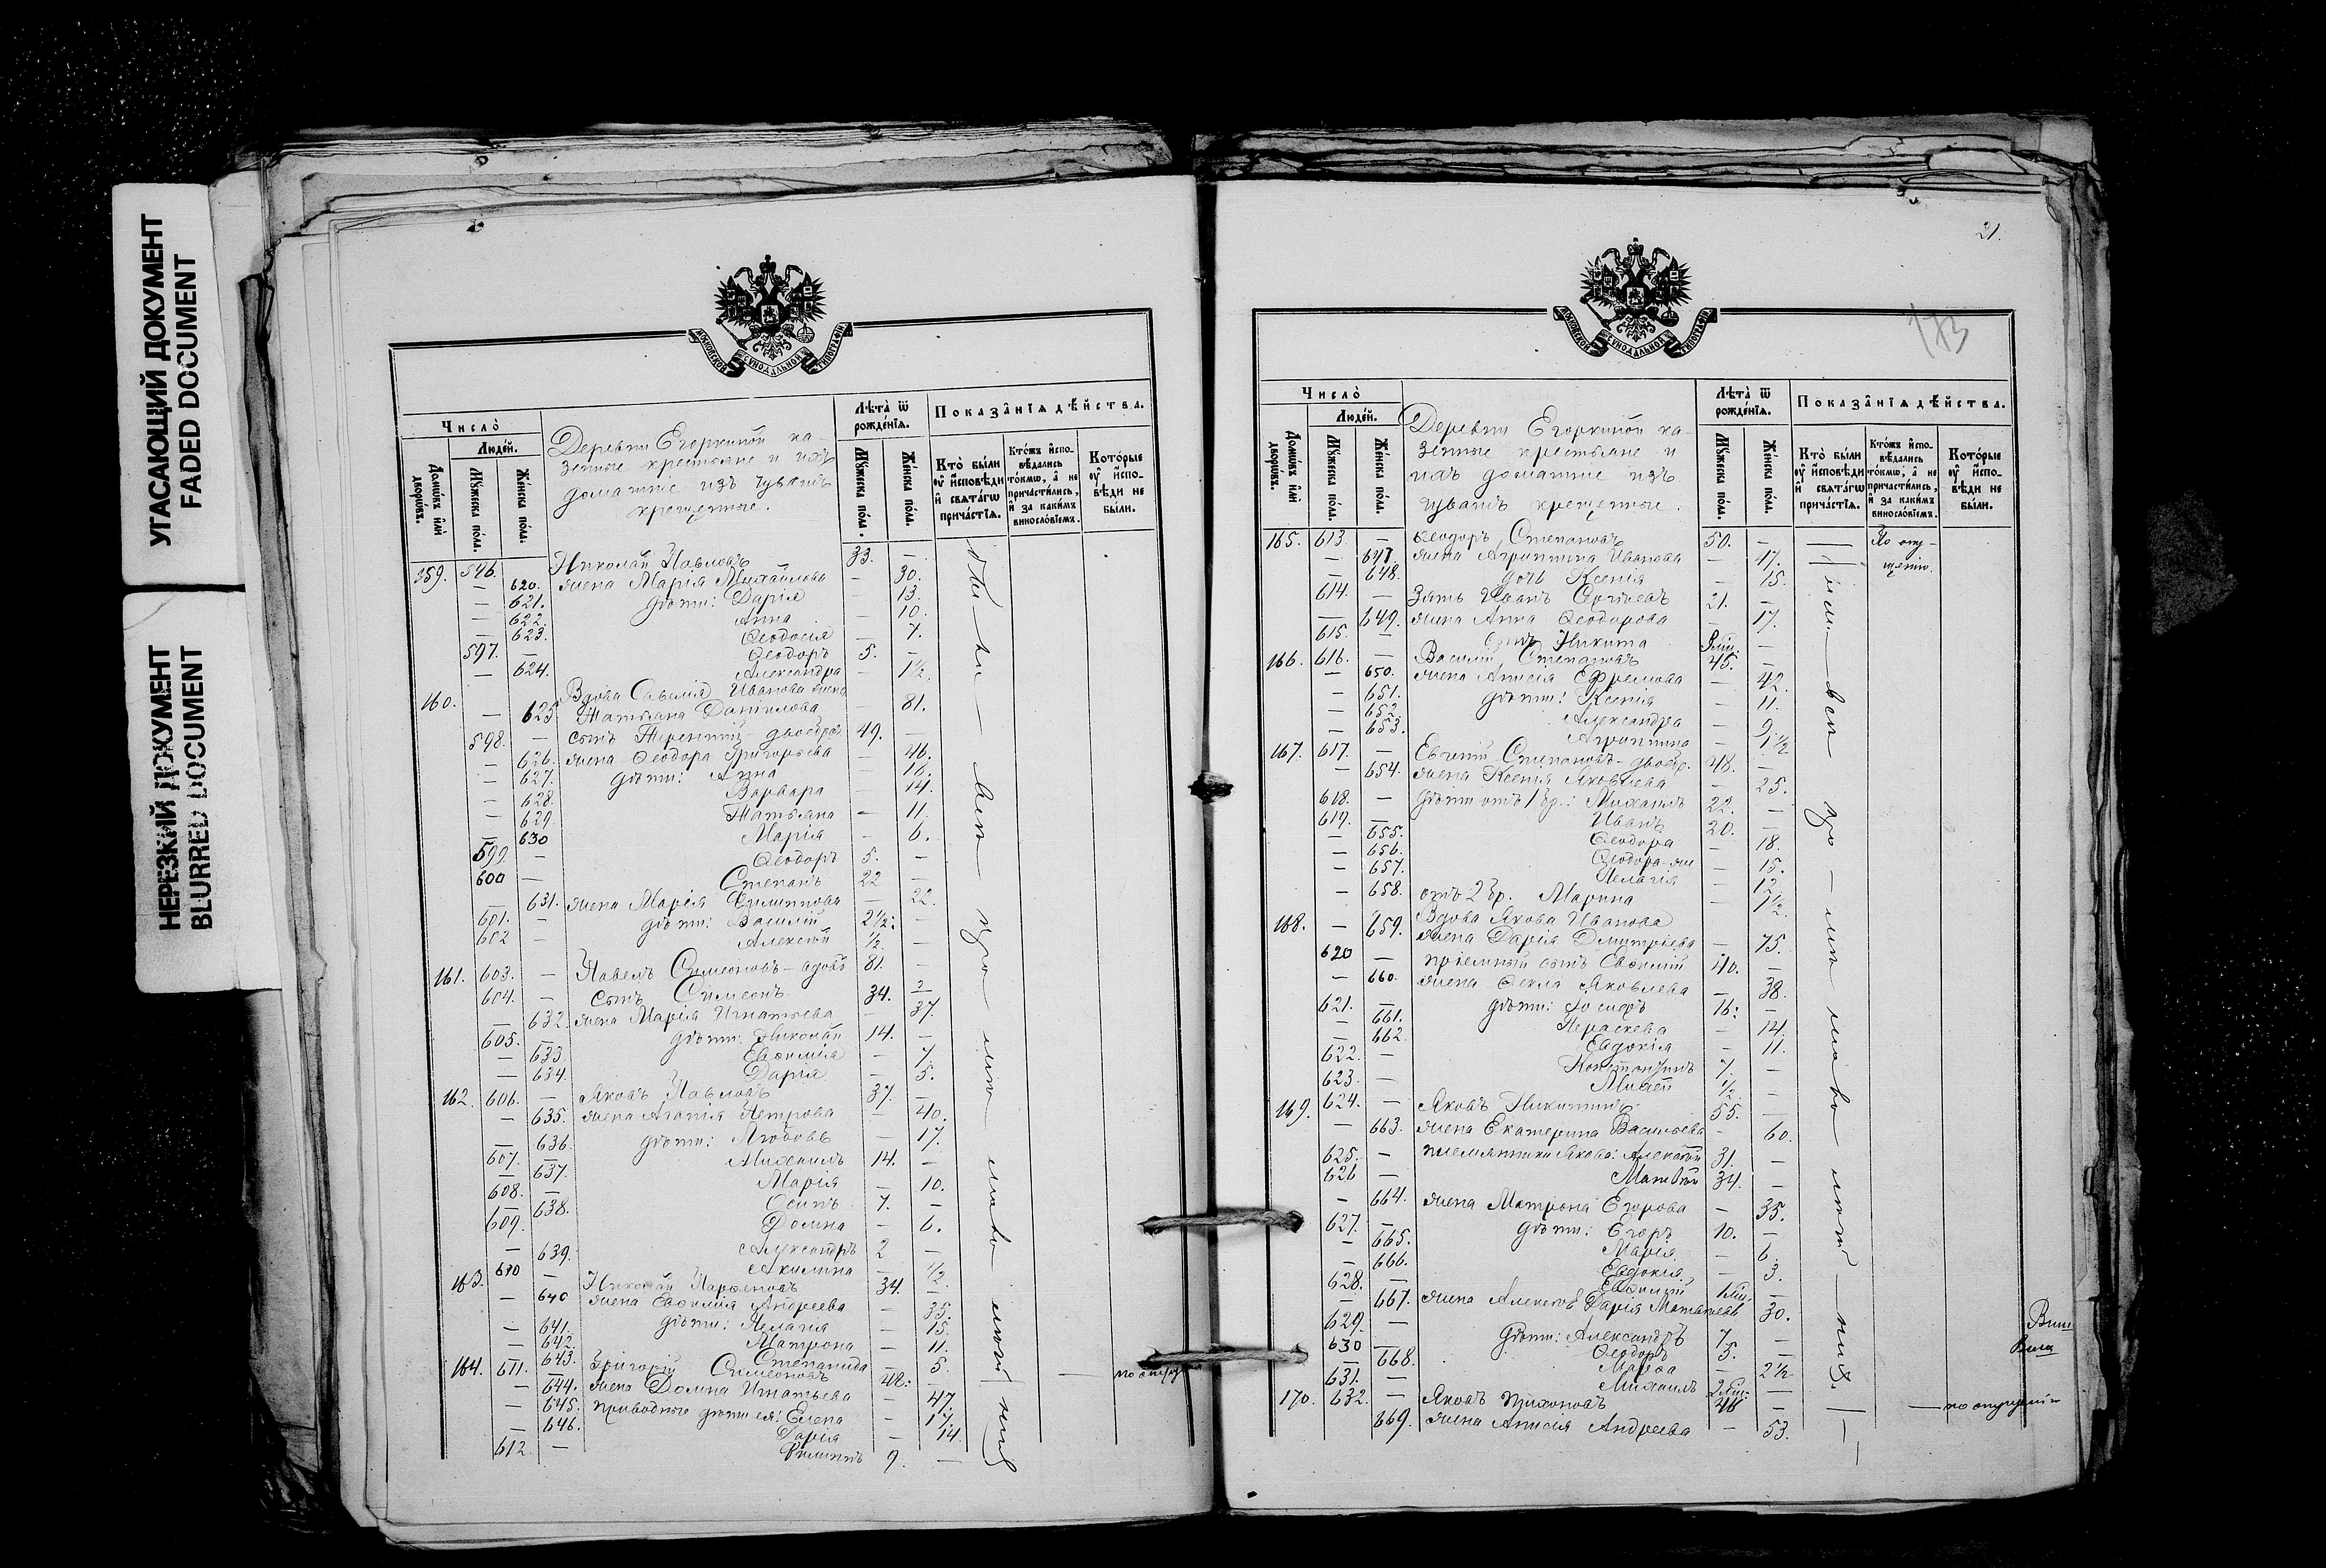 УГАСАЮЩИЙ ДОКУМЕНТ
FADED DOCUMENT
НЕРЕЗКИЙ ДОКУМЕНТ
BLURRED DOCUMENT
МОСКОВСКОЙ СѴНОДАЛЬНОЙ ТИПОГРАФІИ
Число̀
Люде́й.
Домѡ́въ и҆лѝ дворѡ́въ.
Мꙋ́жеска по́ла.
Же́нска по́ла.
Деревни Егоркиной ка-
зенные крестьяне и ихъ
домашніе изъ чувашъ
крещенные.
Лѣ́та ѿ рожде́нїѧ.
Мꙋ́жеска по́ла.
Же́нска по́ла.
Показа̑нїѧ дѣ́йства.
Кто̀ бы́ли оу҆ и҆сповѣди и҆ свята́гѡ прича́стїѧ.
Кто́жъ и҆спо-вѣдались то́кмѡ, а҆ не причасти́лись, и҆ за каки́мъ винослові́емъ.
Кото́рые оу҆ и҆спо-вѣди не бы́ли.
159. 596. Николай Павловъ 33. —
— 620. жена Марія Михайлова — 30.
— 621. дѣти: Дарія — 13.
— 622. Анна — 10.
— 623. Ѳеодосія — 7.
597. — Ѳеодоръ 5. —
— 624. Александра — 1½.
160. Вдова Савелія Иванова жена
— 625 Татьяна Данилова — 81.
598. — сынъ Терентій - двоебр. 49. —
— 626. жена Ѳеодора Григорьева — 46.
— 627. дѣти: Анна — 16.
— 628. Варвара — 14.
— 629 Татьяна — 11.
— 630 Марія — 6.
599. — Ѳеодоръ 5. —
600 — Степанъ 22 —
— 631. жена Марія Филиппова — 22.
601. — дѣти: Василій 2½. —
602 — Алексѣй ½. —
161. 603. — Павелъ Симеоновъ - вдовъ 81. —
604. — сынъ Симеонъ 34. —
— 632. жена Марія Игнатьева — 37.
605. — дѣти: Николай 14. —
— 633. Евѳимія — 7.
— 634. Дарія — 5.
162. 606. — Яковъ Павловъ 37. —
— 635. жена Агапія Петрова — 40.
— 636. дѣти: Любовь — 17.
607. — Михаилъ 14. —
— 637. Марія — 10.
608. — Осипъ 7. —
— 638. Домна — 6.
609. — Александръ 2 —
— 639. Акилина — ½.
163. 610 — Николай Парѳеновъ 34. —
— 640 жена Евѳимія Андреева — 35.
— 641. дѣти: Пелагія — 15.
— 642. Матрона — 11.
— 643. Степанида — 5.
164. 611. — Григорій Симеоновъ 48. —
— 644. жена Домна Игнатьева — 47.
— 645. приводные дѣти ея: Елена — 17.
— 646. Дарія — 14.
612. — Филиппъ 9. —
21.
173
МОСКОВСКОЙ СѴНОДАЛЬНОЙ ТИПОГРАФІИ
Число̀
Люде́й.
Домѡ́въ и҆лѝ дворѡ́въ.
Мꙋ́жеска по́ла.
Же́нска по́ла.
Деревни Егоркиной ка-
зенные крестьяне и
ихъ домашніе изъ
чувашъ крещенные.
Лѣ́та ѿ рожде́нїѧ.
Мꙋ́жеска по́ла.
Же́нска по́ла.
Показа̑нїѧ дѣ́йства.
Кто̀ бы́ли оу҆ и҆сповѣди и҆ свята́гѡ прича́стїѧ.
Кто́жъ и҆спо-вѣдались то́кмѡ, а҆ не причасти́лись, и҆ за каки́мъ винослові́емъ.
Кото́рые оу҆ и҆спо-вѣди не бы́ли.
165. 613. — Ѳеодоръ Степановъ 50. — По опу-
— 647. жена Агриппина Иванова — 47. щенію.
— 648. дочь Ксенія — 15.
614. — Зять Иванъ Сергѣевъ 21. —
— 649. жена Анна Ѳеодорова — 17.
615. — сынъ Никита —
166. 616. — Василій Степановъ 45. —
— 650. жена Анисія Ефремова — 42.
— 651. дѣти: Ксенія — 11.
— 652. Александра — 9.
— 653. Агриппина — 1½
167. 617. — Евѳимій Степановъ - двоебр. 48. —
— 654. жена Ксенія Яковлева — 25.
618. — дѣти отъ 1 бр.: Михаилъ 22. —
619. — Иванъ 20. —
— 655. Ѳеодора — 18.
— 656. Ѳеодора — 15.
— 657. Пелагія — 12.
— 658. отъ 2 бр. Марина — 1½.
168. Вдова Якова Иванова
— 659. жена Дарія Дмитріева — 75.
620 — пріемный сынъ Евѳимій 40. —
— 660. жена Ѳекла Яковлева — 38.
621. — дѣти: Іосифъ 16. —
— 661. Параскева — 14.
— 662. Евдокія — 11.
622. — Константинъ 7. —
623. — ½. —
169. 624. — Яковъ Никитинъ 55. —
— 663. жена Екатерина Васильева — 60.
625. — племянники Якова: Алексѣй 31. —
626 — Матвѣй 34. —
— 664. жена Матрона Егорова — 35.
627. — дѣти: Егоръ 10. —
— 665. Марія — 6.
— 666. Евдокія — 3.
628. — Евѳимій —
— 667. жена Алексѣя Дарія Матвѣева 30.
629. — дѣти: Александръ 7. —
630 — Ѳеодоръ 5. —
— 668. Марѳа — 2½
631. — Михаилъ —
170. 632. — Яковъ Тихоновъ 48 — — по опущенію
— 669. жена Анисія Андреева — 53.